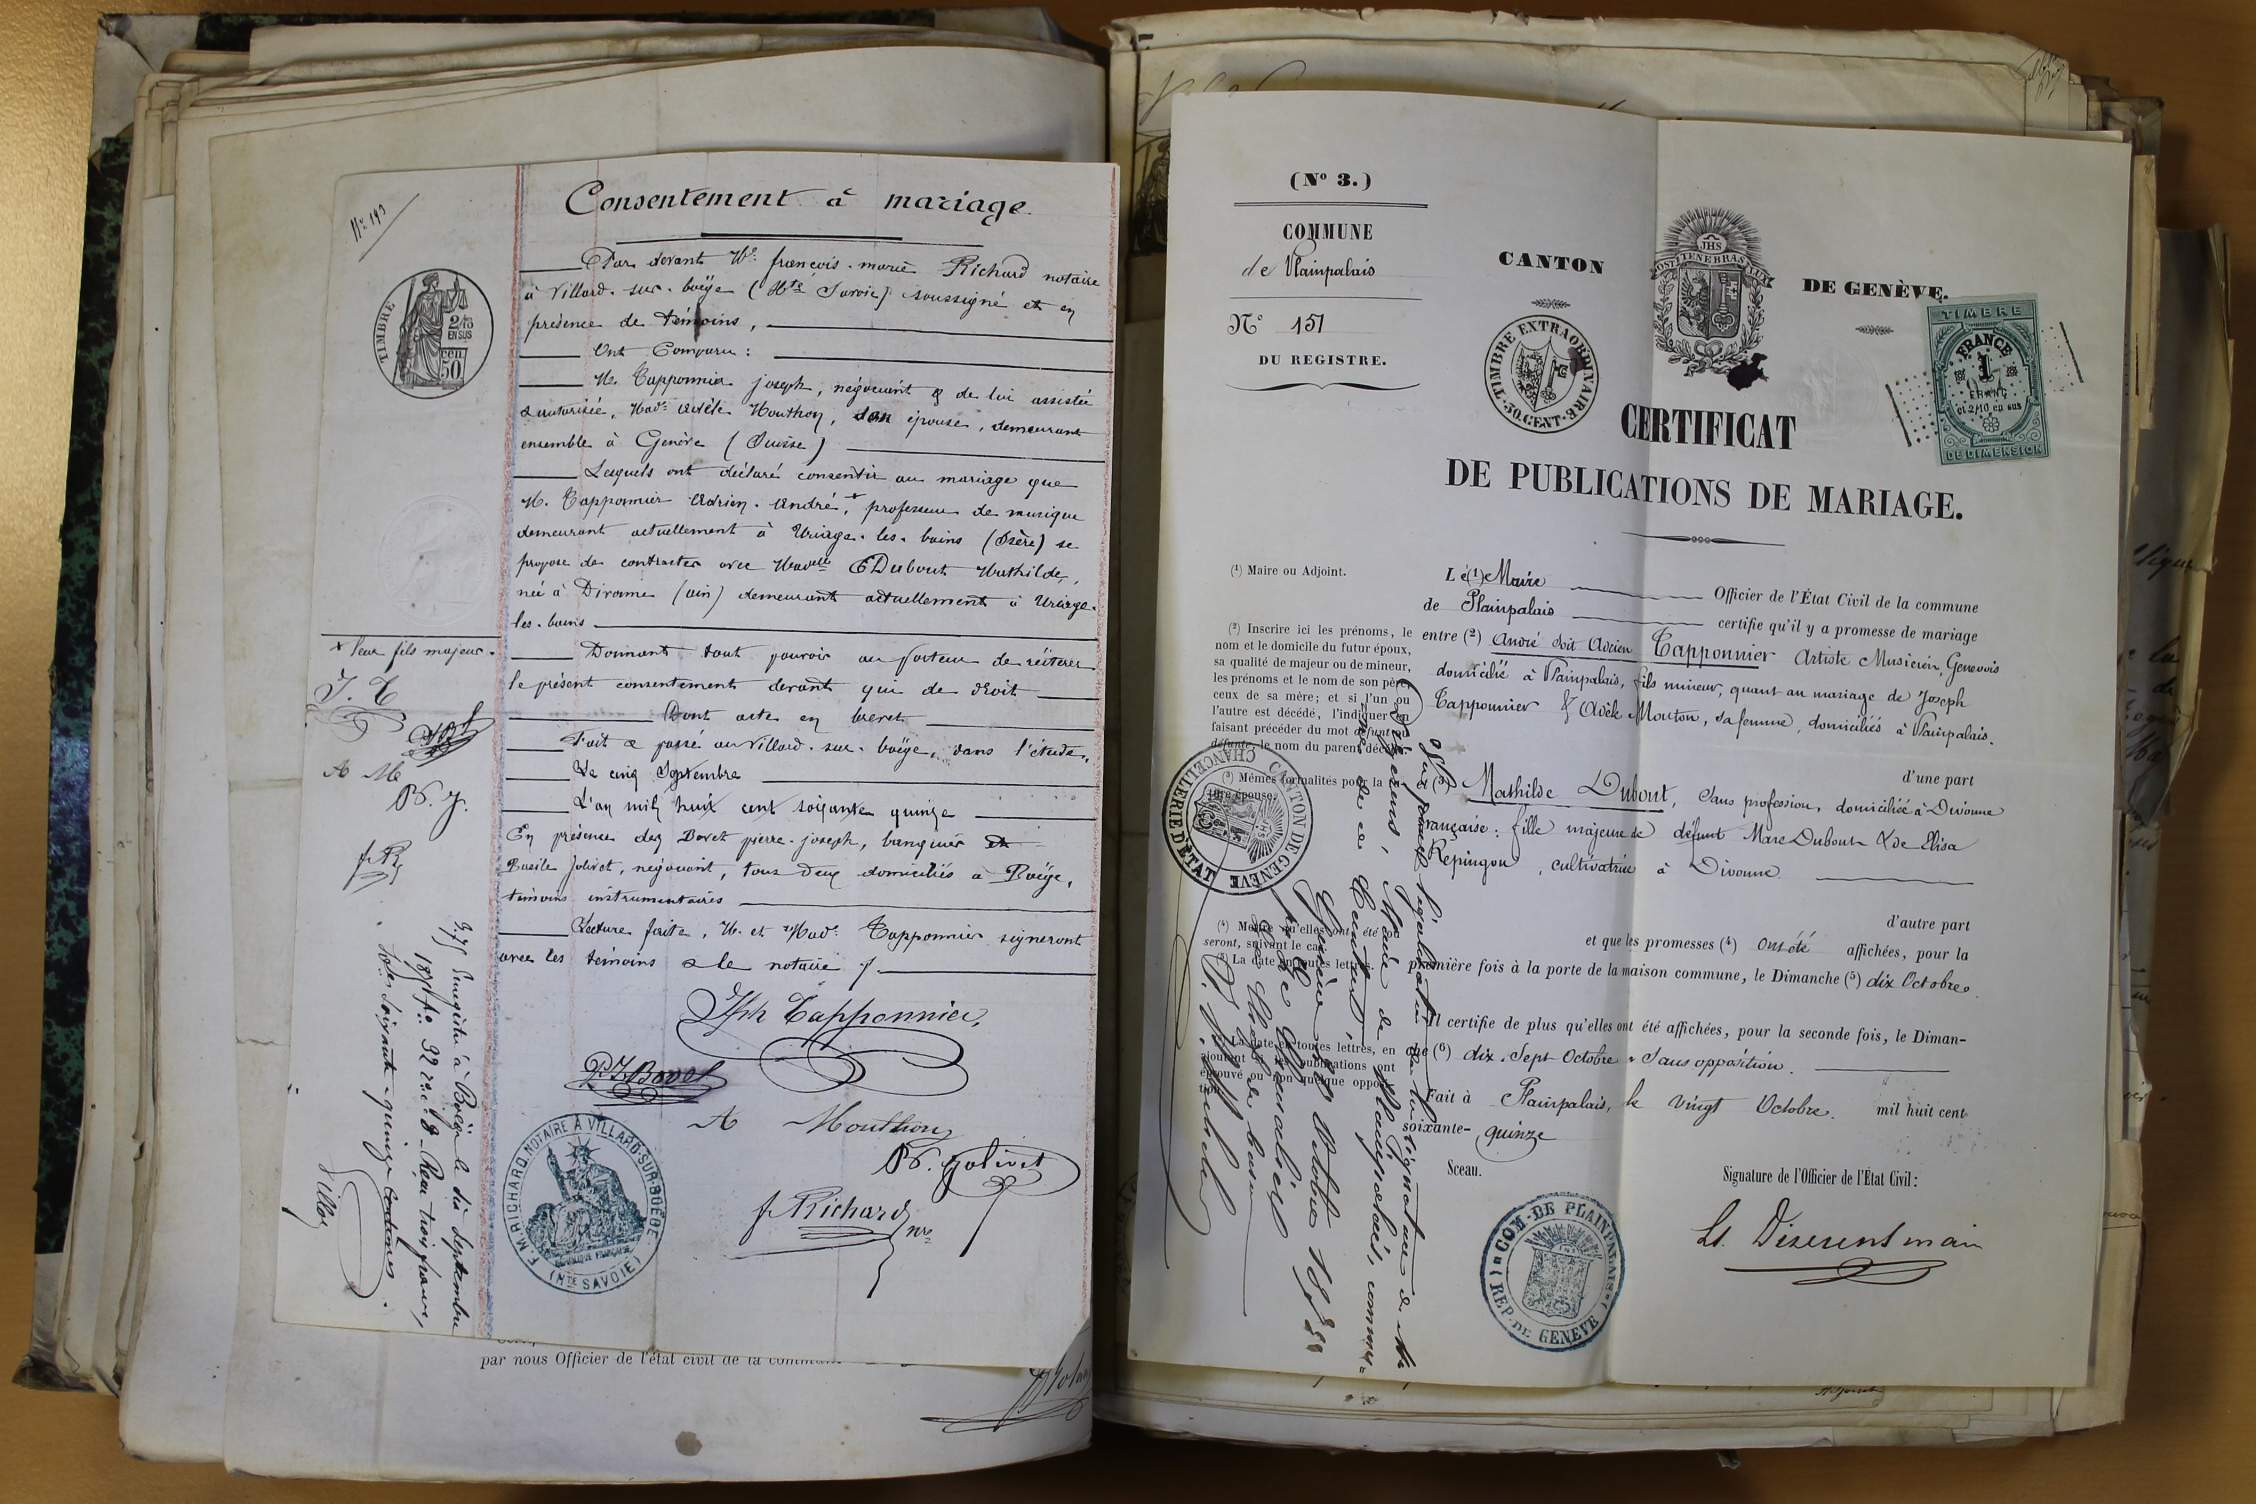 Nº 193
Consentement à mariage
Par devant Me françois-marie Richard notaire
à Villard-sur-boëge (Hte Savoie) soussigné et en
présence de témoins,
Ont Comparu :
M. Tapponnier joseph, négociant & de lui assistée
& autorisée, Made Adèle Mouthon, son épouse, demeurant
ensemble à Genève (Suisse)
Lesquels ont déclaré consentir au mariage que
M. Tapponnier Adrien-André, + professeur de musique
demeurant actuellement à Uriage-les-bains (Isère) se
propose de contracter avec Madelle Dubout Mathilde,
née à Divonne (ain) demeurant actuellement à Uriage-
les-bains
+ leur fils majeur.
Donnant tout pouvoir au porteur de réitérer
le présent consentement devant qui de droit
Dont acte en brevet
Fait & passé au Villard-sur-boëge, dans l'étude,
Le cinq Septembre
L'an mil huit cent soixante quinze
En présence des Bovet pierre-joseph, banquier et
Basile Jolivet, négociant, tous deux domiciliés à Boëge,
témoins instrumentaires
Lecture faite, M. et Made Tapponnier signeront
avec les témoins & le notaire
J. T
A M
B. J.
f. R
Jph Tapponnier
P. J. Bovet
A Mouthon
B. Jolivet
f. Richard nre
TIMBRE
2/10
EN SUS
cen
50
F. M. RICHARD, NOTAIRE À VILLARD-SUR-BOËGE
(HTE SAVOIE)
RÉPUBLIQUE FRANÇAISE
Enregistré à Boëge le six Septembre
1875 fo 92 re c. 8 Reçu trois francs,
soixante-quinze centimes.
par nous Officier de l'état civil de la commune
(Nº 3.)
COMMUNE
de Plainpalais
Nº 151
DU REGISTRE.
CANTON DE GENÈVE.
JHS
POST TENEBRAS LUX
TIMBRE EXTRAORDINAIRE
50 CENT.
TIMBRE
FRANCE
1
FRANC
et 2/10 en sus
DE DIMENSION
CERTIFICAT
DE PUBLICATIONS DE MARIAGE.
(1) Maire ou Adjoint.
Le (1) Maire Officier de l'État Civil de la commune
de Plainpalais certifie qu'il y a promesse de mariage
entre (2) André dit Adrien Tapponnier Artiste Musicien, Genevois
domicilié à Plainpalais, fils mineur, quant au mariage de Joseph
Tapponnier & Adèle Mouton, sa femme, domiciliés à Plainpalais.
d'une part
(2) Inscrire ici les prénoms, le
nom et le domicile du futur époux,
sa qualité de majeur ou de mineur,
les prénoms et le nom de son père,
ceux de sa mère; et si l'un ou
l'autre est décédé, l'indiquer en
faisant précéder du mot défunt ou
défunte le nom du parent décédé.
(3) Mêmes formalités pour la
future épouse.
(3) Mathilde Dubout, Sans profession, domiciliée à Divonne
Française : fille majeure de défunt Marc Dubout & de Elisa
Repingon, cultivatrice à Divonne.
d'autre part
(4) Mettre qu'elles ont été ou
seront, suivant le cas.
(5) La date en toutes lettres.
et que les promesses (4) ont été affichées, pour la
première fois à la porte de la maison commune, le Dimanche (5) dix Octobre.
Il certifie de plus qu'elles ont été affichées, pour la seconde fois, le Diman-
che (6) dix-Sept Octobre. Sans opposition.
(6) La date en toutes lettres, en
ajoutant si les publications ont
éprouvé ou non quelque opposi-
tion.
Fait à Plainpalais, le vingt Octobre. mil huit cent
soixante-quinze
Sceau.
Signature de l'Officier de l'État Civil :
Ls. Diserens maire
COM. DE PLAINPALAIS
RÉP. DE GENÈVE
CHANCELLERIE D'ÉTAT
CANTON DE GENÈVE
Vu pour légalisation de la signature de Mr
Diserens, Maire de Plainpalais, commune
de ce Canton,
Genève le 21 Octobre 1875